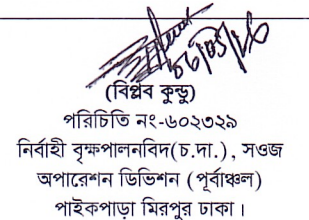 (বিপ্লব কুন্ডু)
পরিচিতি নং-৬০২৩২৯
নির্বাহী বৃক্ষপালনবিদ(চ.দা.), সওজ
অপারেশন ডিভিশন (পূর্বাঞ্চল)
পাইকপাড়া মিরপুর ঢাকা।